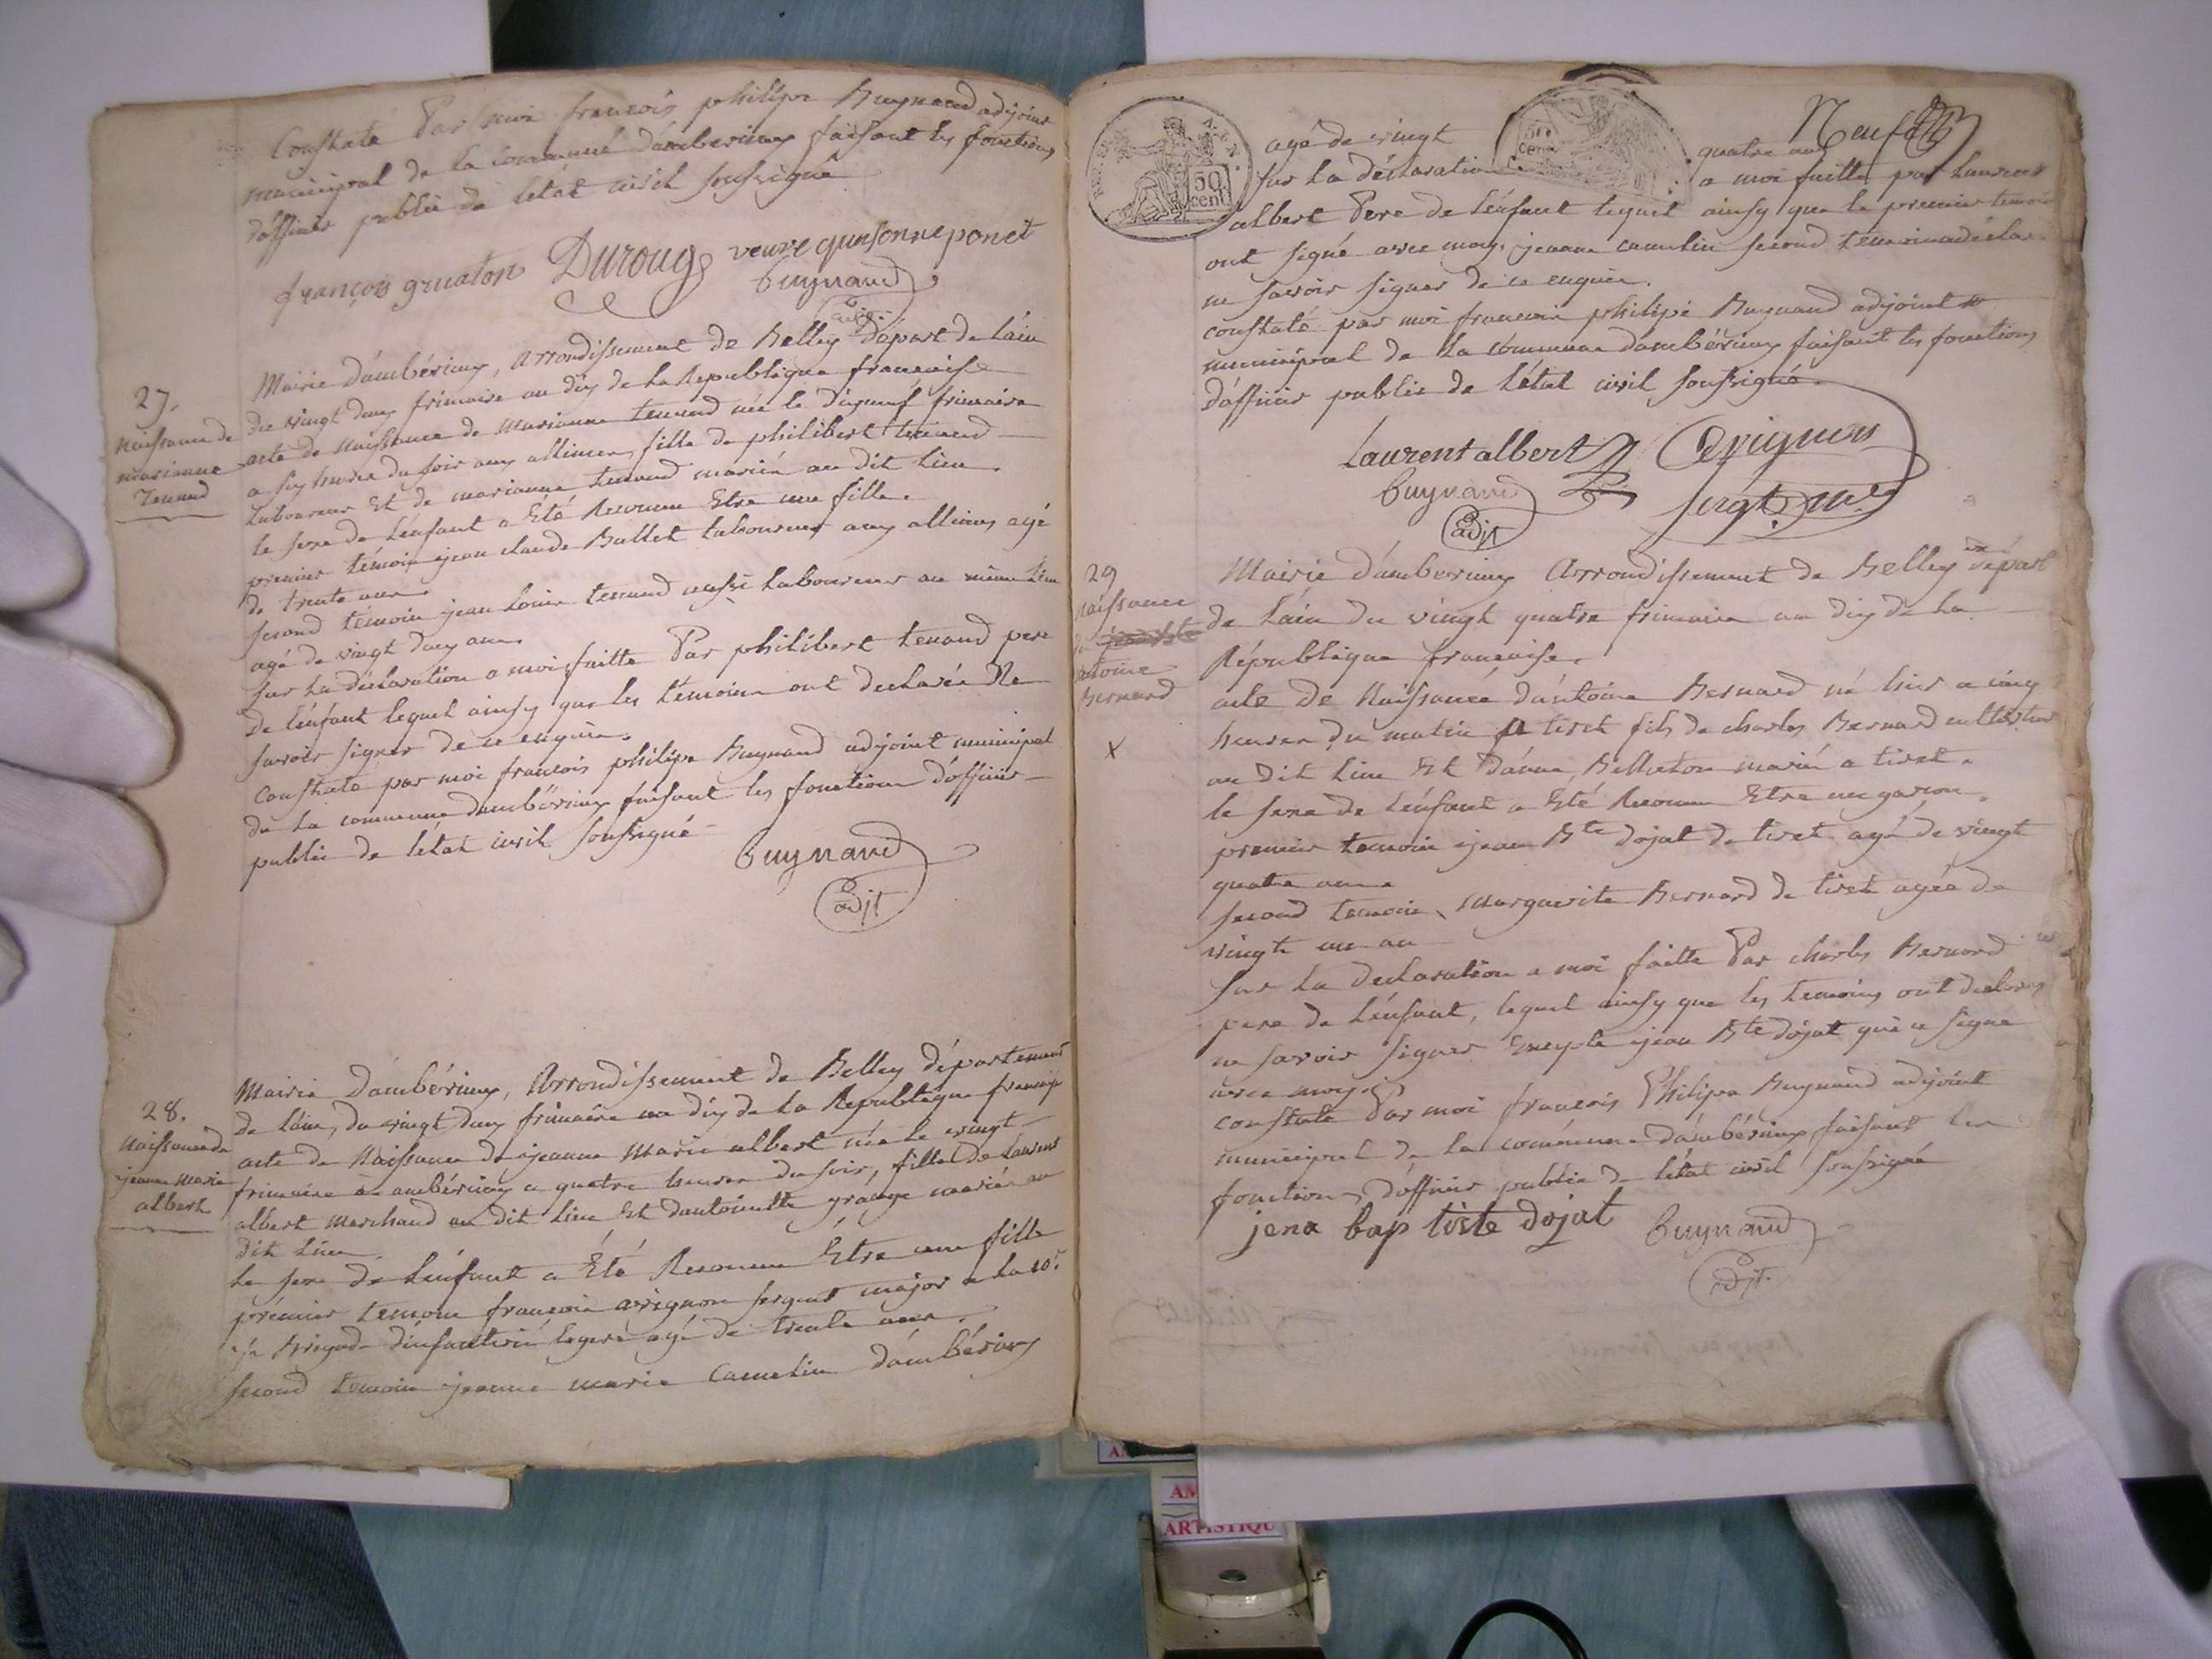 Constaté Par moi francois philipe Buynand adjoint
municipal de la commune d'ambérieux faisant les fonctions
d'officier public de létat civil soussigné
françois gruaton Duroug veuve quinsonne ponet
Buynand
adjt
27.
Naissance de
marianne
Tenand
Mairie d'ambérieux, arrondissement de Belley dépârt de Láin
Du vingt deux frimaire an dix de la Republique francaise
acte de Naissance de Marianne tenand née le dixneuf frimaire
a six heures du soir aux allimes, fille de philibert tenand
Laboureur Et de marianne tenand mariés au dit lieu.
le sexe de Lénfant a Eté Reconnu Etre une fille.
premier témoin jean claude Bullet laboureur aux allimes agé
de trente ans
second témoin jean Louis tenand aussi Laboureur au même lieu
agé de vingt deux ans
sur La déclaration a moi faitte Par philibert tenand pere
de Lénfant lequel ainsy que les témoins ont declaré Ne
savoir signer de ce enquis.
Constaté par moi francois philipe Buynand adjoint municipal
de La commune dambérieux faisant les fonctions d'officier
public de létat civil soussigné
Buynand
adjt
28.
Naissance de
jeanne Marie
albert
Mairie D'ambérieux, Arrondissement de Belley département
de Láin, du vingt deux frimaire an dix de La Republique francaise
acte de Naissance de jeanne Marie albert née le vingt
frimaire a ambérieux a quatre heures du soir, fille de Laurent
albert Marchand au dit lieu Et d'antoinette grange mariés au
dit lieu.
Le sexe de Lénfant a Eté Reconnu Etre une fille
prémier temoin francois avignon sergent major a La 10e
1/2 Brigade d'infanterie legere agé de trente ans.
second temoin jeanne marie Camelin d'ambérieux
50
cent
50
cen
Neuf
agé de vingt quatre ans
sur La déclaration a moi faitte par Laurent
albert Pere de Lénfant lequel ainsy que le premier temoin
ont signé avec moy, jeanne camelin second temoin a déclaré
ne savoir signer de ce enquise.
constaté par moi francois philipe Buynand adjoint
municipal de La commune d'ambérieux faisant les fonctions
D'officier public de Létat civil soussigné.
Laurent albert Avignon
Buynand sergt mr
adjt
29
Naissance
antoine
Bernard
X
Mairie d'ambérieux Arrondissement de Belley dépârt
de Láin du vingt quatre frimaire an dix de la
République francaise.
acte de Naissance d'antoine Bernard né hier a cinq
heures du matin a tiret fils de charles Bernard cultivateur
au dit lieu Et D'anne Belleton mariés a tiret.
le sexe de Lénfant a Eté Reconnu Etre un garcon.
premier temoin jean Bte dojat de tiret agé de vingt
quatre ans
second temoin, Marguerite Bernard de tiret agée de
vingt un an
sur La declaration a moi faitte Par charles Bernard
pere de Lénfant, lequel ainsy que les temoins ont declarés
ne savoir signer Excepté jean Bte dojat qui a signé
avec moy.
constaté Par moi francois Philipe Buynand adjoint
municipal de la commune d'ambérieux faisant les
fonctions d'officier public de létat civil soussigné
jena bap tiste dojat Buynand
adjt.